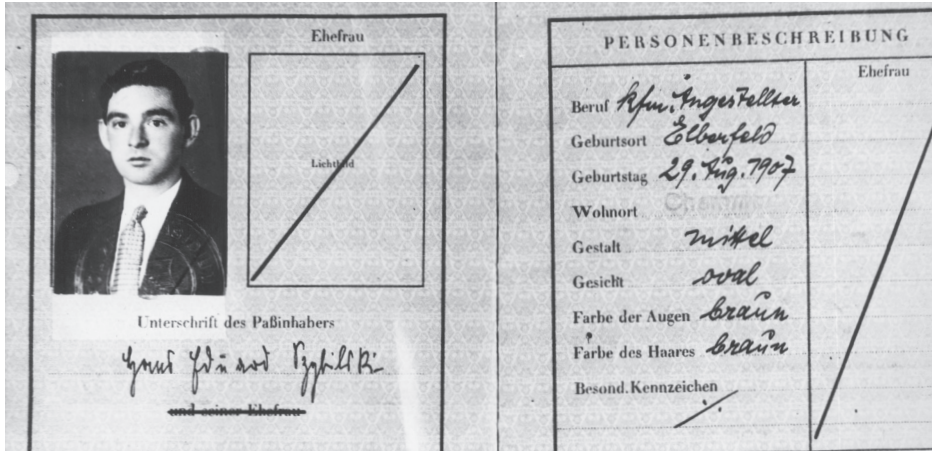 Ehefrau
Lichtbild
Unterschrift des Paßinhabers
Hans Eduard
und seiner Ehefrau
PERSONENBESCHREIBUNG
Ehefrau
Beruf kfm. Angestellter
Geburtsort Elberfeld
Geburtstag 29. Aug. 1907
Wohnort Chemnitz
Gestalt mittel
Gesicht oval
Farbe der Augen braun
Farbe des Haares braun
Besond. Kennzeichen ·/.